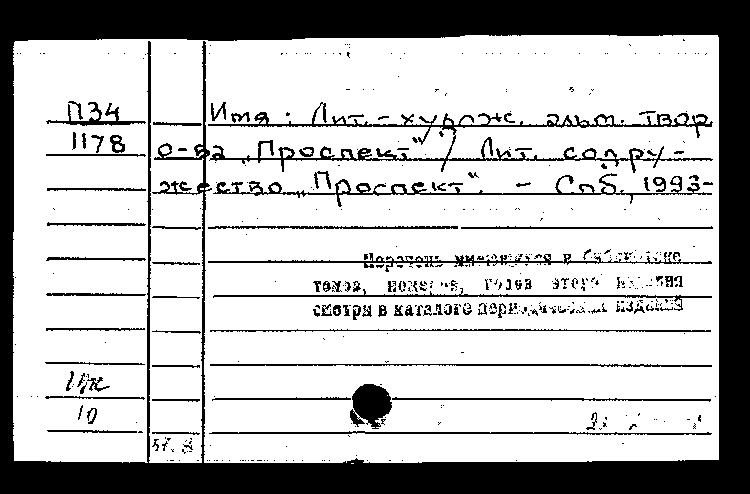 П34 Имя: Лит.-худож. альм. твор
1178 о-ва „Проспект“ / Лит. содру-
жество „Проспект“. - Спб., 1993-
Перечень имеющихся в библиотеке
томов, номеров, годов этого издания
смотри в каталоге периодических изданий
10